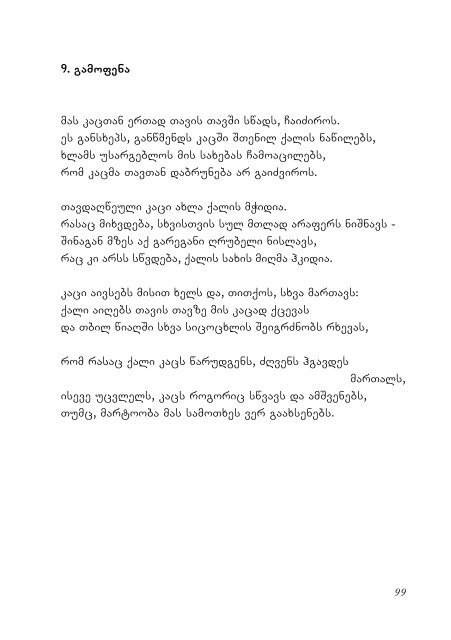 9. გამოფენა
მას კაცთან ერთად თავის თავში სწადს, ჩაიძიროს.
ეს განსხეპს, განწმენდს კაცში შთენილ ქალის ნაწილებს,
ხლამს უსარგებლოს მის სახებას ჩამოაცილებს,
რომ კაცმა თავთან დაბრუნება არ გაიძვიროს.
თავდაღწეული კაცი ახლა ქალის მჭიდია.
რასაც მიხვდება, სხვისთვის სულ მთლად არაფერს ნიშნავს -
შინაგან მზეს აქ გარეგანი ღრუბელი ნისლავს,
რაც კი არსს სწვდება, ქალის სახის მიღმა ჰკიდია.
კაცი აივსებს მისით ხელს და, თითქოს, სხვა მართავს:
ქალი აიღებს თავის თავზე მის კაცად ქცევას
და თბილ წიაღში სხვა სიცოცხლის შეიგრძნობს რხევას,
რომ რასაც ქალი კაცს წარუდგენს, ძღვენს ჰგავდეს
მართალს,
ისევე უცვლელს, კაცს როგორიც სწვავს და ამშვენებს,
თუმც, მარტოობა მას სამოთხეს ვერ გაახსენებს.
99